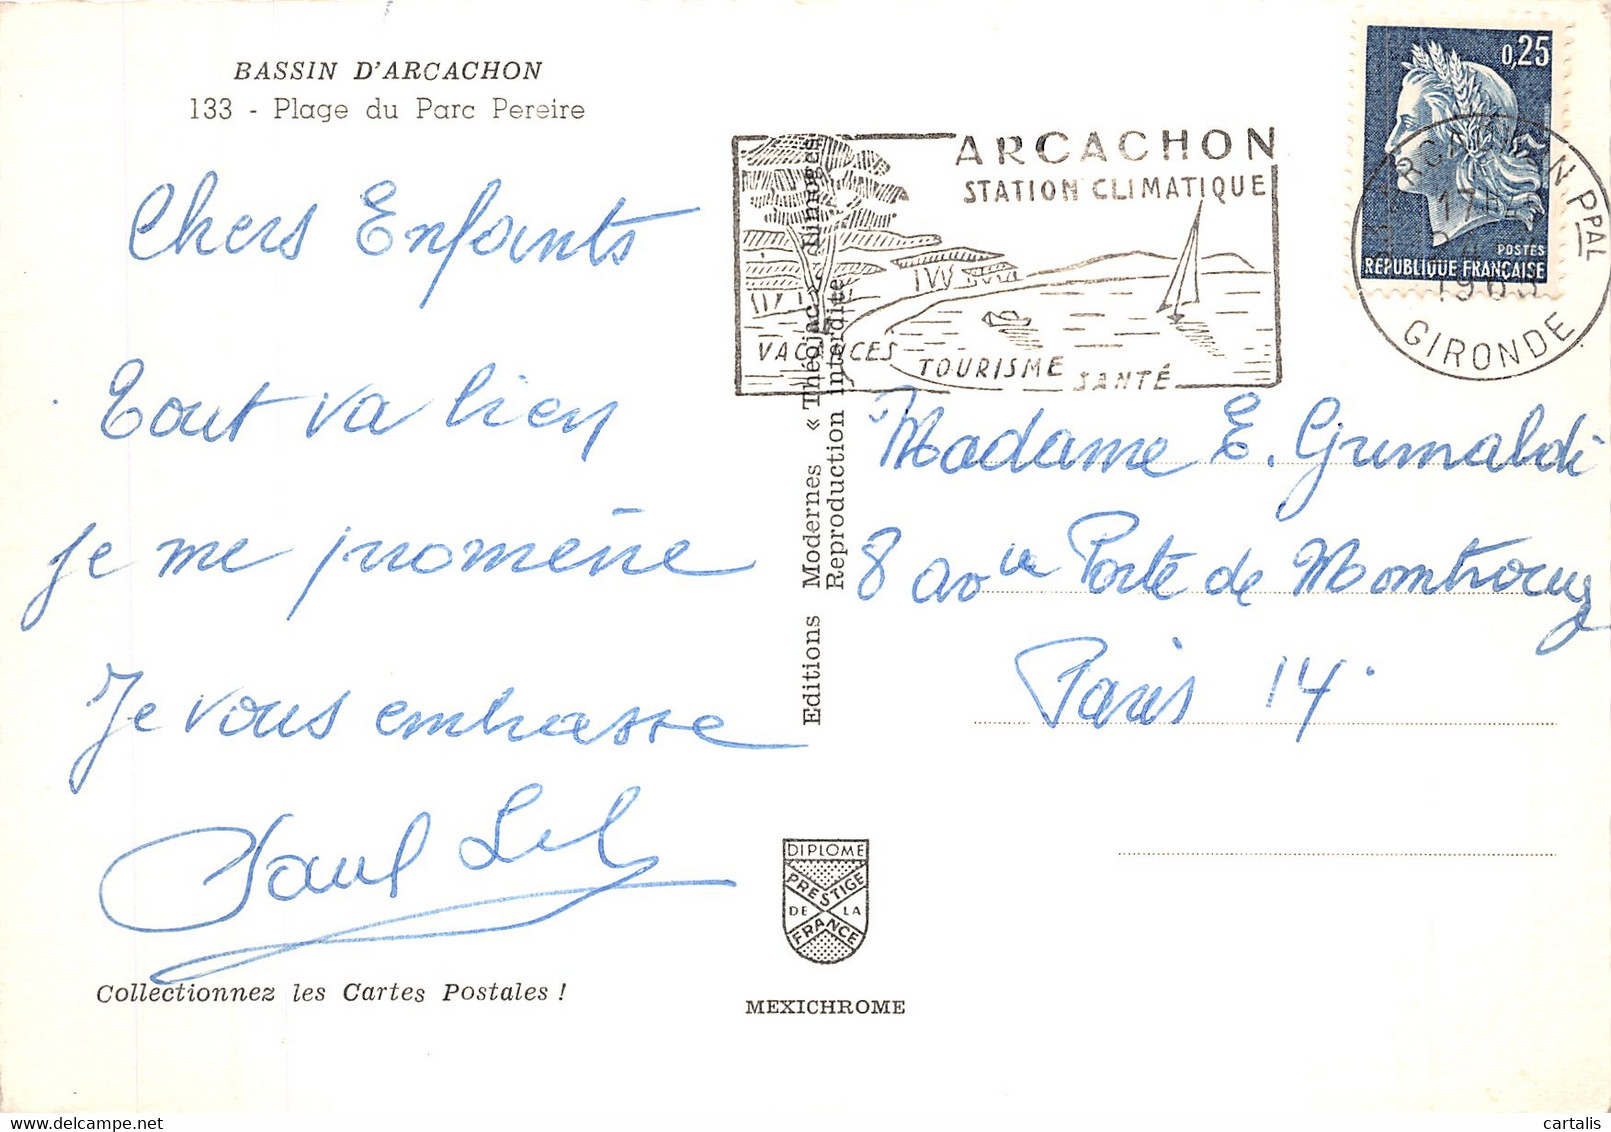 BASSIN D'ARCACHON
133 - Plage du Parc Pereire
Chers Enfants
Tout va bien
je me promène
Je vous embrasse
Paul
Collectionnez les Cartes Postales !
Editions Modernes « Théojac » Limoges
Reproduction interdite
ARCACHON
STATION CLIMATIQUE
VACANCES
TOURISME
SANTÉ
0,25
POSTES
RÉPUBLIQUE FRANÇAISE
ARCACHON PPAL
17H
GIRONDE
Madame E. Grimaldi
8 av de la Porte de Montrouge
Paris 14
DIPLOME
PRESTIGE
DE LA
FRANCE
MEXICHROME
cartalis
delcampe.net